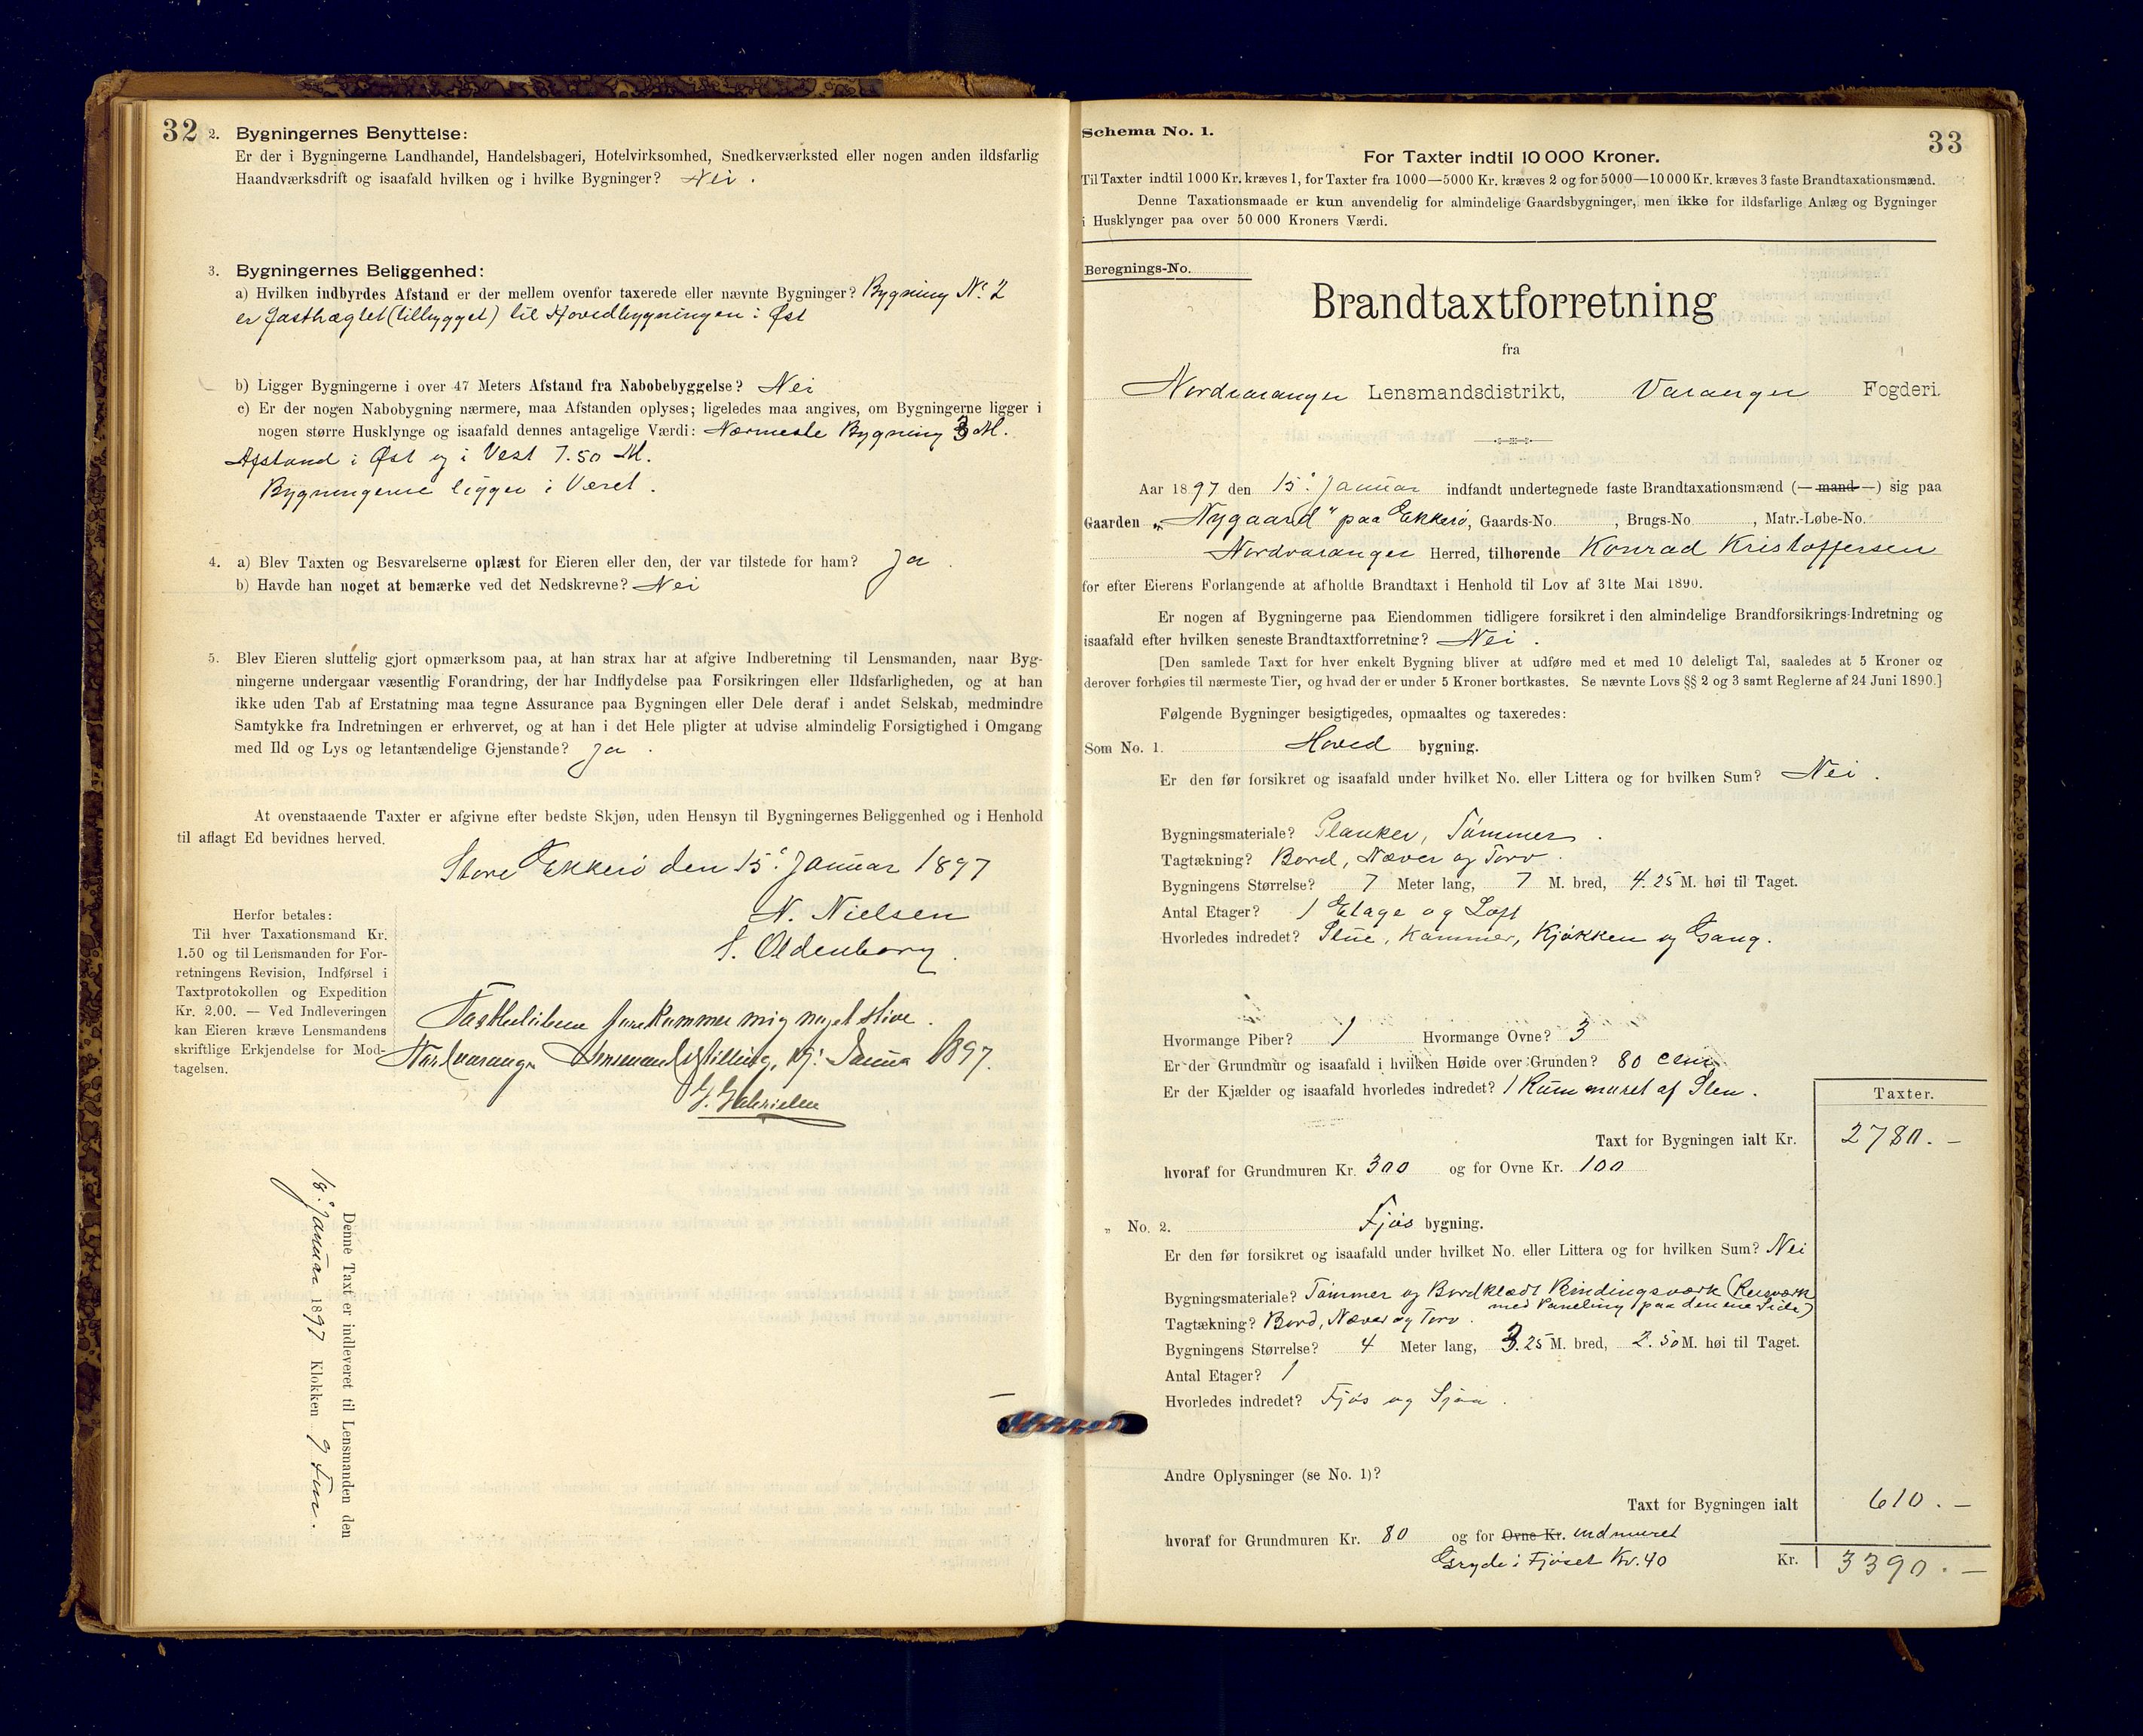 32
2. Bygningernes Benyttelse:
Er der i Bygningerne Landhandel, Handelsbageri, Hotelvirksomhed, Snedkerværksted eller nogen anden ildsfarlig
Haandværksdrift og isaafald hvilken og i hvilke Bygninger? Nei.
3. Bygningernes Beliggenhed:
a) Hvilken indbyrdes Afstand er der mellem ovenfor taxerede eller nævnte Bygninger? Bygning No. 2
er fasthægtet (tilbygget) til Hovedbygningen i Øst
b) Ligger Bygningerne i over 47 Meters Afstand fra Nabobebyggelse? Nei
c) Er der nogen Nabobygning nærmere, maa Afstanden oplyses; ligeledes maa angives, om Bygningerne ligger i
nogen større Husklynge og isaafald dennes antagelige Værdi: Nærmeste Bygning 3 M.
Afstand i Øst og i Vest 7.50 M.
Bygningerne ligger i Været.
4. a) Blev Taxten og Besvarelserne oplæst for Eieren eller den, der var tilstede for ham? Ja.
b) Havde han noget at bemærke ved det Nedskrevne? Nei
5. Blev Eieren sluttelig gjort opmærksom paa, at han strax har at afgive Indberetning til Lensmanden, naar Byg-
ningerne undergaar væsentlig Forandring, der har Indflydelse paa Forsikringen eller Ildsfarligheden, og at han
ikke uden Tab af Erstatning maa tegne Assurance paa Bygningen eller Dele deraf i andet Selskab, medmindre
Samtykke fra Indretningen er erhvervet, og at han i det Hele pligter at udvise almindelig Forsigtighed i Omgang
med Ild og Lys og letantændelige Gjenstande? Ja.
At ovenstaaende Taxter er afgivne efter bedste Skjøn, uden Hensyn til Bygningernes Beliggenhed og i Henhold
til aflagt Ed bevidnes herved.
Store Ekkerö den 15. Januar 1897
N. Nielsen
S. Oldenborg.
Herfor betales:
Til hver Taxationsmand Kr.
1.50 og til Lensmanden for For-
retningens Revision, Indførsel i
Taxtprotokollen og Expedition
Kr. 2.00. — Ved Indleveringen
kan Eieren kræve Lensmandens
skriftlige Erkjendelse for Mod-
tagelsen.
forekommer mig noget
Nordvaranger Lensmandsbestilling, 19. Januar 1897.
Denne Taxt er indleveret til Lensmanden den
18. Januar 1897 Klokken 9 Fm.
Schema No. 1.
33
For Taxter indtil 10 000 Kroner.
Til Taxter indtil 1000 Kr. kræves 1, for Taxter fra 1000—5000 Kr. kræves 2 og for 5000—10 000 Kr. kræves 3 faste Brandtaxationsmænd.
Denne Taxationsmaade er kun anvendelig for almindelige Gaardsbygninger, men ikke for ildsfarlige Anlæg og Bygninger
i Husklynger paa over 50 000 Kroners Værdi.
Beregnings-No.
Brandtaxtforretning
fra
Nordvaranger Lensmandsdistrikt, Varanger Fogderi.
Aar 1897 den 15. Januar indfandt undertegnede faste Brandtaxationsmænd (—mand—) sig paa
Gaarden „Nygaard" paa Ekkerö, Gaards-No. , Brugs-No. , Matr.-Løbe-No.
Nordvaranger Herred, tilhørende Konrad Kristoffersen
for efter Eierens Forlangende at afholde Brandtaxt i Henhold til Lov af 31te Mai 1890.
Er nogen af Bygningerne paa Eiendommen tidligere forsikret i den almindelige Brandforsikrings-Indretning og
isaafald efter hvilken seneste Brandtaxtforretning? Nei.
[Den samlede Taxt for hver enkelt Bygning bliver at udføre med et med 10 deleligt Tal, saaledes at 5 Kroner og
derover forhøies til nærmeste Tier, og hvad der er under 5 Kroner bortkastes. Se nævnte Lovs §§ 2 og 3 samt Reglerne af 24 Juni 1890.]
Følgende Bygninger besigtigedes, opmaaltes og taxeredes:
Som No. 1. Hoved bygning.
Er den før forsikret og isaafald under hvilket No. eller Littera og for hvilken Sum? Nei.
Bygningsmateriale? Planker, Tömmer.
Tagtækning? Bord, Næver og Torv.
Bygningens Størrelse? 7 Meter lang, 7 M. bred, 4.25 M. høi til Taget.
Antal Etager? 1 Etage og Loft
Hvorledes indredet? Stue, Kammer, Kjökken og Gang.
Hvormange Piber? 1 Hvormange Ovne? 3
Er der Grundmur og isaafald i hvilken Høide over Grunden? 80 ctm
Er der Kjælder og isaafald hvorledes indredet? 1 Rum muret af Sten.
Taxter.
Taxt for Bygningen ialt Kr. 2780.—
hvoraf for Grundmuren Kr. 300 og for Ovne Kr. 100
„ No. 2. Fjös bygning.
Er den før forsikret og isaafald under hvilket No. eller Littera og for hvilken Sum? Nei
Bygningsmateriale? Tömmer og Bordklædt Bindingsværk (Reisværk
med Paneling paa den ene Side)
Tagtækning? Bord, Næver og Torv.
Bygningens Størrelse? 4 Meter lang, 3.25 M. bred, 2.50 M. høi til Taget.
Antal Etager? 1
Hvorledes indredet? Fjös og Sjaa.
Andre Oplysninger (se No. 1)?
Taxt for Bygningen ialt 610.—
hvoraf for Grundmuren Kr. 80 og for Ovne Kr. indmuret
Gryde i Fjöset Kr. 40
Kr. 3390.—